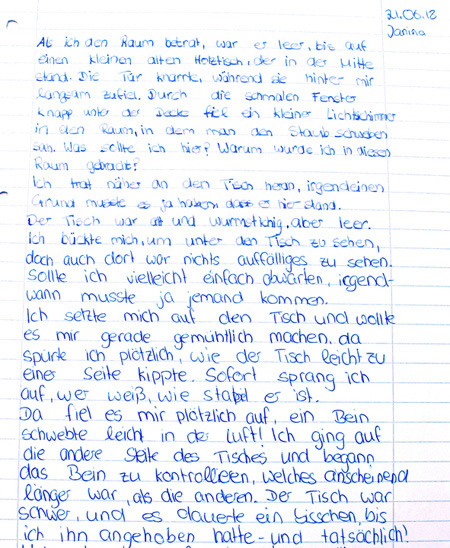 21.06.18
Janina
Als ich den Raum betrat, war er leer, bis auf
einen kleinen alten Holztisch, der in der Mitte
stand. Die Tür knarrte, während sie hinter mir
langsam zufiel. Durch die schmalen Fenster
knapp unter der Decke fiel ein kleiner Lichtschimmer
in den Raum, in dem man den Staub schweben
sah. Was sollte ich hier? Warum wurde ich in diesen
Raum gebracht?
Ich trat näher an den Tisch heran, irgendeinen
Grund musste es ja haben, dass er hier stand.
Der Tisch war alt und wurmstichig, aber leer.
Ich bückte mich, um unter den Tisch zu sehen,
doch auch dort war nichts auffälliges zu sehen.
Sollte ich vielleicht einfach abwarten, irgend-
wann musste ja jemand kommen.
Ich setzte mich auf den Tisch und wollte
es mir gerade gemühtlich machen, da
spürte ich plötzlich, wie der Tisch leicht zu
einer Seite kippte. Sofort sprang ich
auf, wer weiß, wie stabil er ist.
Da fiel es mir plötzlich auf, ein Bein
schwebte leicht in der Luft! Ich ging auf
die andere Seite des Tisches und begann
das Bein zu kontrollieren, welches anscheinend
länger war, als die anderen. Der Tisch war
schwer, und es dauerte ein bisschen, bis
ich ihn angehoben hatte - und tatsächlich!